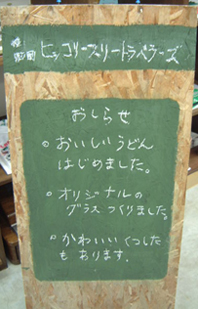 ヒッコリースリートラベラーズ
おしらせ
○おいしいうどん
はじめました。
○オリジナルの
グラスつくりました。
○かわいいくつした
もあります。